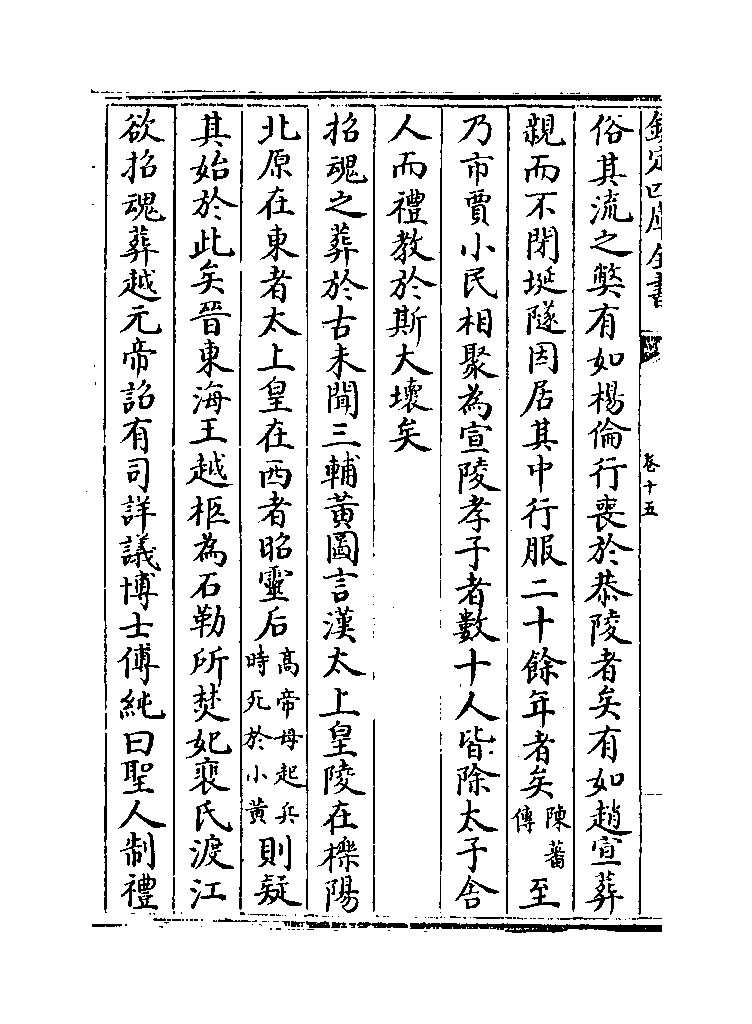 欽定四庫全書
卷十五
俗其流之獘有如楊倫行喪於恭陵者矣有如趙宣葬
親而不閉埏隧因居其中行服二十餘年者矣陳蕃傳至
乃市賈小民相聚為宣陵孝子者數十人皆除太子舍
人而禮教於斯大壞矣
招魂之葬於古未聞三輔黃圖言漢太上皇陵在櫟陽
北原在東者太上皇在西者昭靈后高帝母起兵時死於小黃則疑
其始於此矣晉東海王越柩為石勒所焚妃裴氏渡江
欲招魂葬越元帝詔有司詳議博士傅純曰聖人制禮